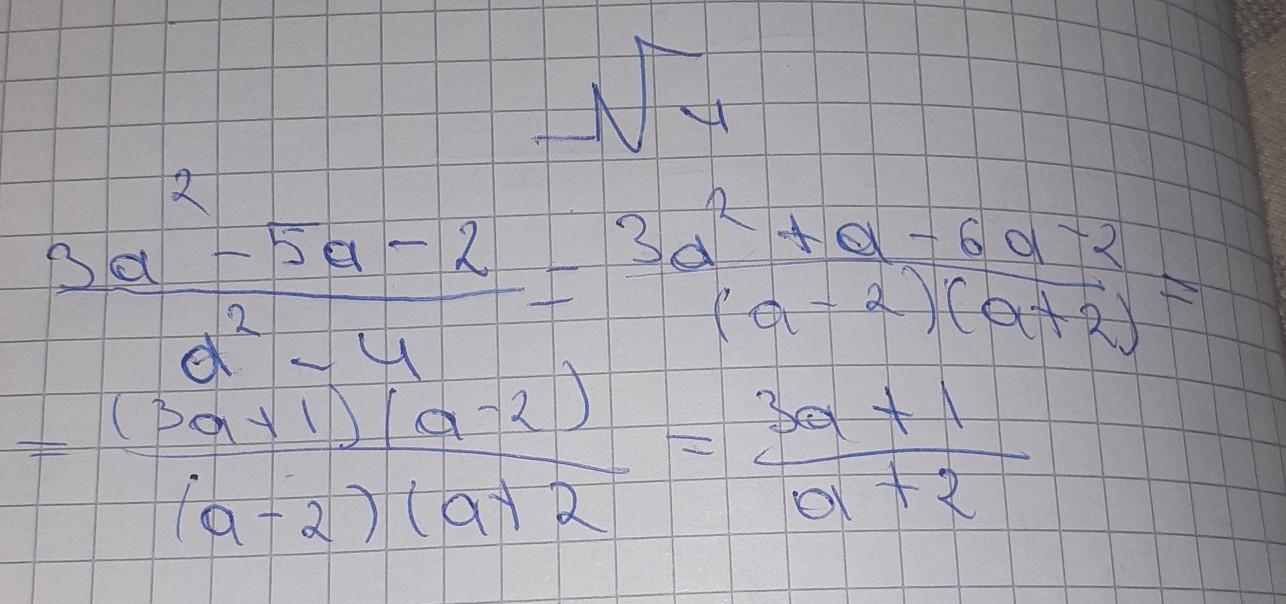 №4
(3a² - 5a - 2)/(a² - 4) = (3a² + a - 6a - 2)/((a - 2)(a + 2)) =
= ((3a + 1)(a - 2))/((a - 2)(a + 2) = (3a + 1)/(a + 2)